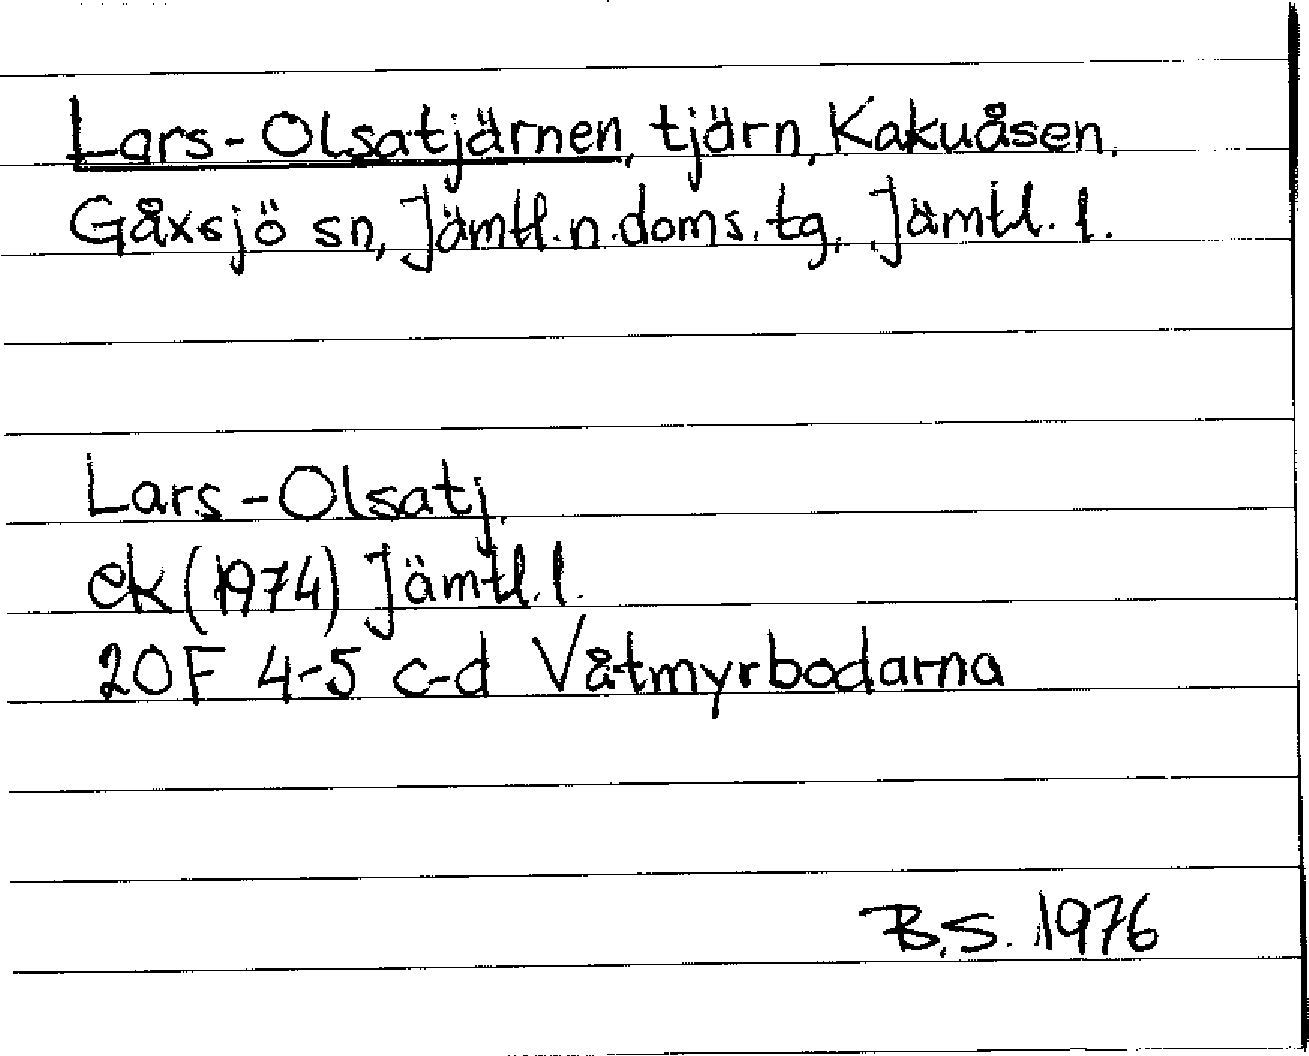 Lars-Olsatjärnen, tjärn, Kakuåsen,
Gåxsjö sn, Jämtl. n. doms. tg, Jämtl. l.
Lars-Olsatj.
ek (1974) Jämtl. l.
20F 4-5 c-d Våtmyrbodarna
B.S. 1976